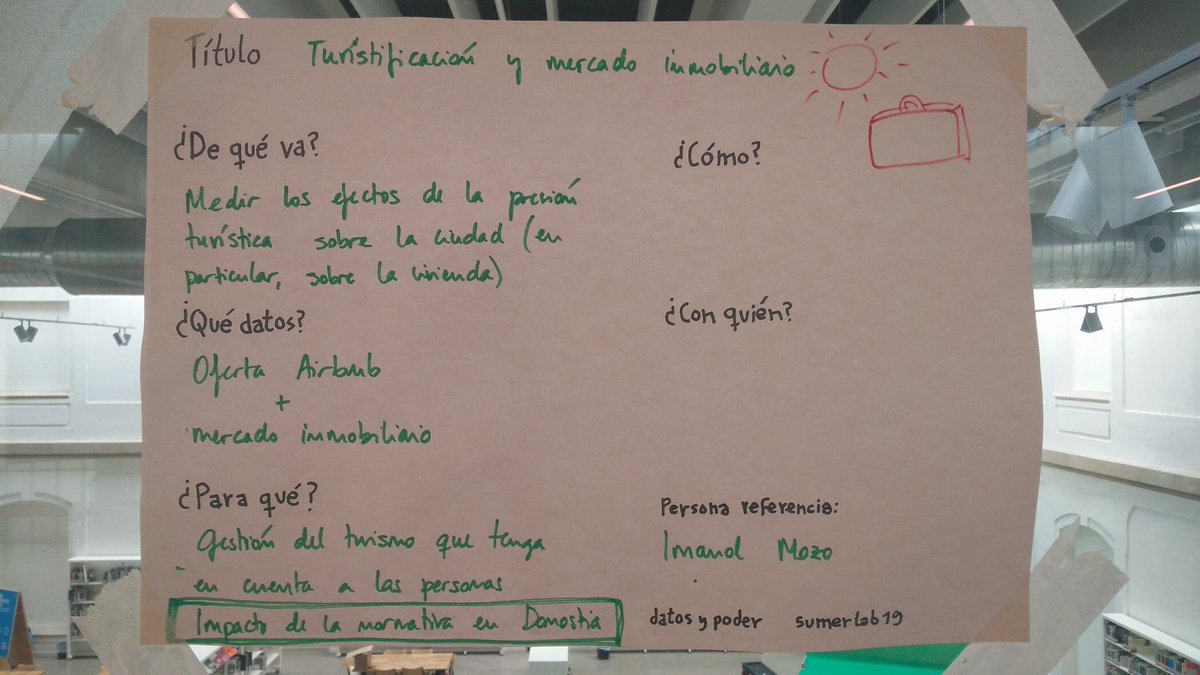 Título Turistificación y mercado inmobiliario
¿De qué va?
Medir los efectos de la presión
turística sobre la ciudad (en
particular, sobre la vivienda)
¿Qué datos?
Oferta Airbnb
+
mercado inmobiliario
¿Para qué?
Gestión del turismo que tenga
en cuenta a las personas
Impacto de la normativa en Donostia
¿Cómo?
¿Con quién?
Persona referencia:
Imanol Mozo
datos y poder sumerlab19